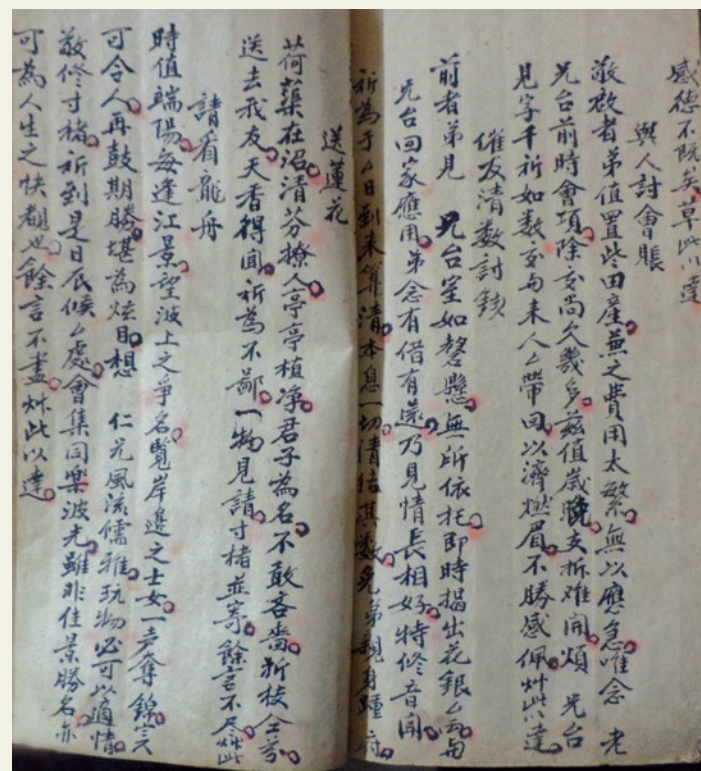 感德不既矣草此以達
與人討會賬
敬啟者弟值置些田產兼之費用太繁無以應急唯念 老
兄台前時會項除交尚欠幾多茲值歲晚支拆难開煩 兄台
見字千祈如数交与來人厶帶回以濟燃眉不勝感佩艸此以達
催友清数討錢
前者弟見 兄台室如磬懸無所依托即時揭出花銀厶厶与
兄台回家應用弟念有借有還乃見情長相好特修音聞
祈為于厶日到來算清本息一切清结其数免弟親身踵府
送蓮花
荷蕖在沼清芬撩人亭亭植净君子為名不敢吝嗇斯枝仝寄
送去我友天香得聞祈為不鄙一物見請寸楮並寄餘言不尽艸此
請看龍舟
時值端陽每逢江景望波上之爭名覽岸邊之士女一声奪錦寔
可令人再鼓期勝堪為炫目想 仁兄風流儒雅玩物必可以適情
敬修寸楮祈到是日辰候厶處會集同樂波光雖非佳景勝名亦
可為人生之快覩也餘言不盡艸此以達